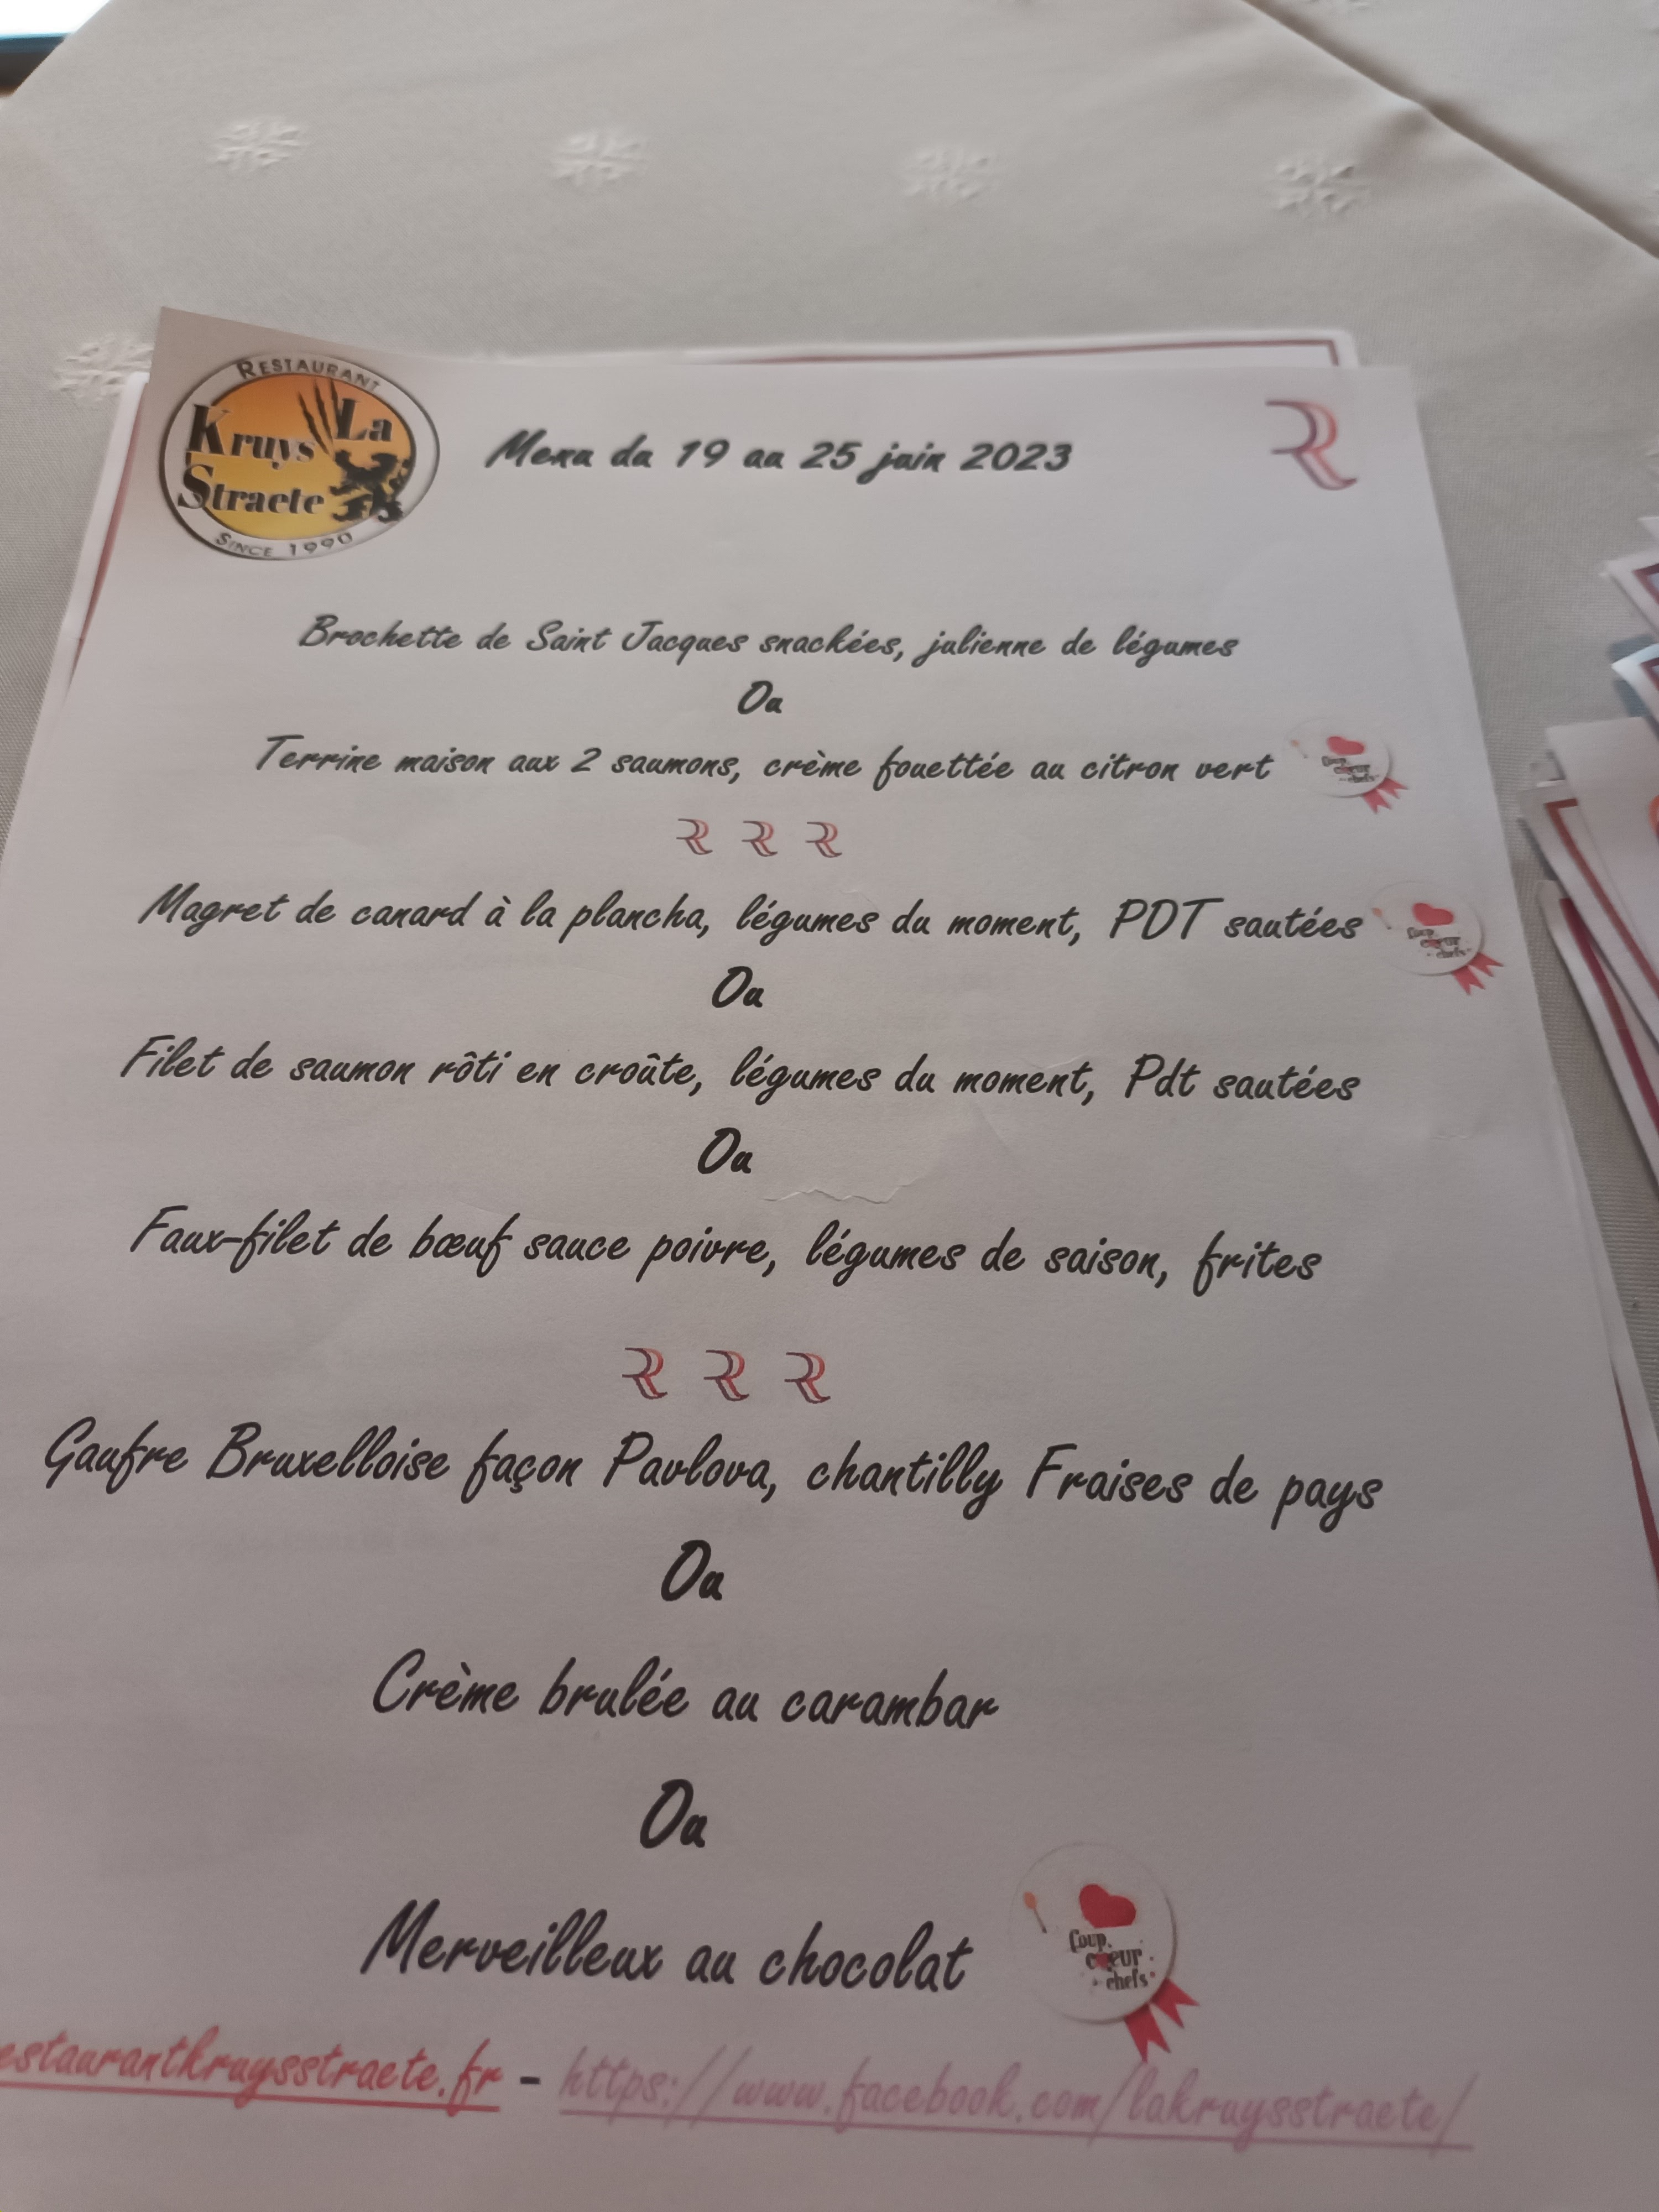 RESTAURANT
La
Kruys
Straete
SINCE 1990
Menu du 19 au 25 juin 2023
R
Brochette de Saint Jacques snackées, julienne de légumes
Ou
Terrine maison aux 2 saumons, crème fouettée au citron vert
Coup
cœur
chefs
R R R
Magret de canard à la plancha, légumes du moment, PDT sautées
Coup
cœur
chefs
Ou
Filet de saumon rôti en croûte, légumes du moment, Pdt sautées
Ou
Faux-filet de bœuf sauce poivre, légumes de saison, frites
R R R
Gaufre Bruxelloise façon Pavlova, chantilly Fraises de pays
Ou
Crème brulée au carambar
Ou
Merveilleux au chocolat
Coup
cœur
chefs
estaurantkruysstraete.fr - https://www.facebook.com/lakruysstraete/